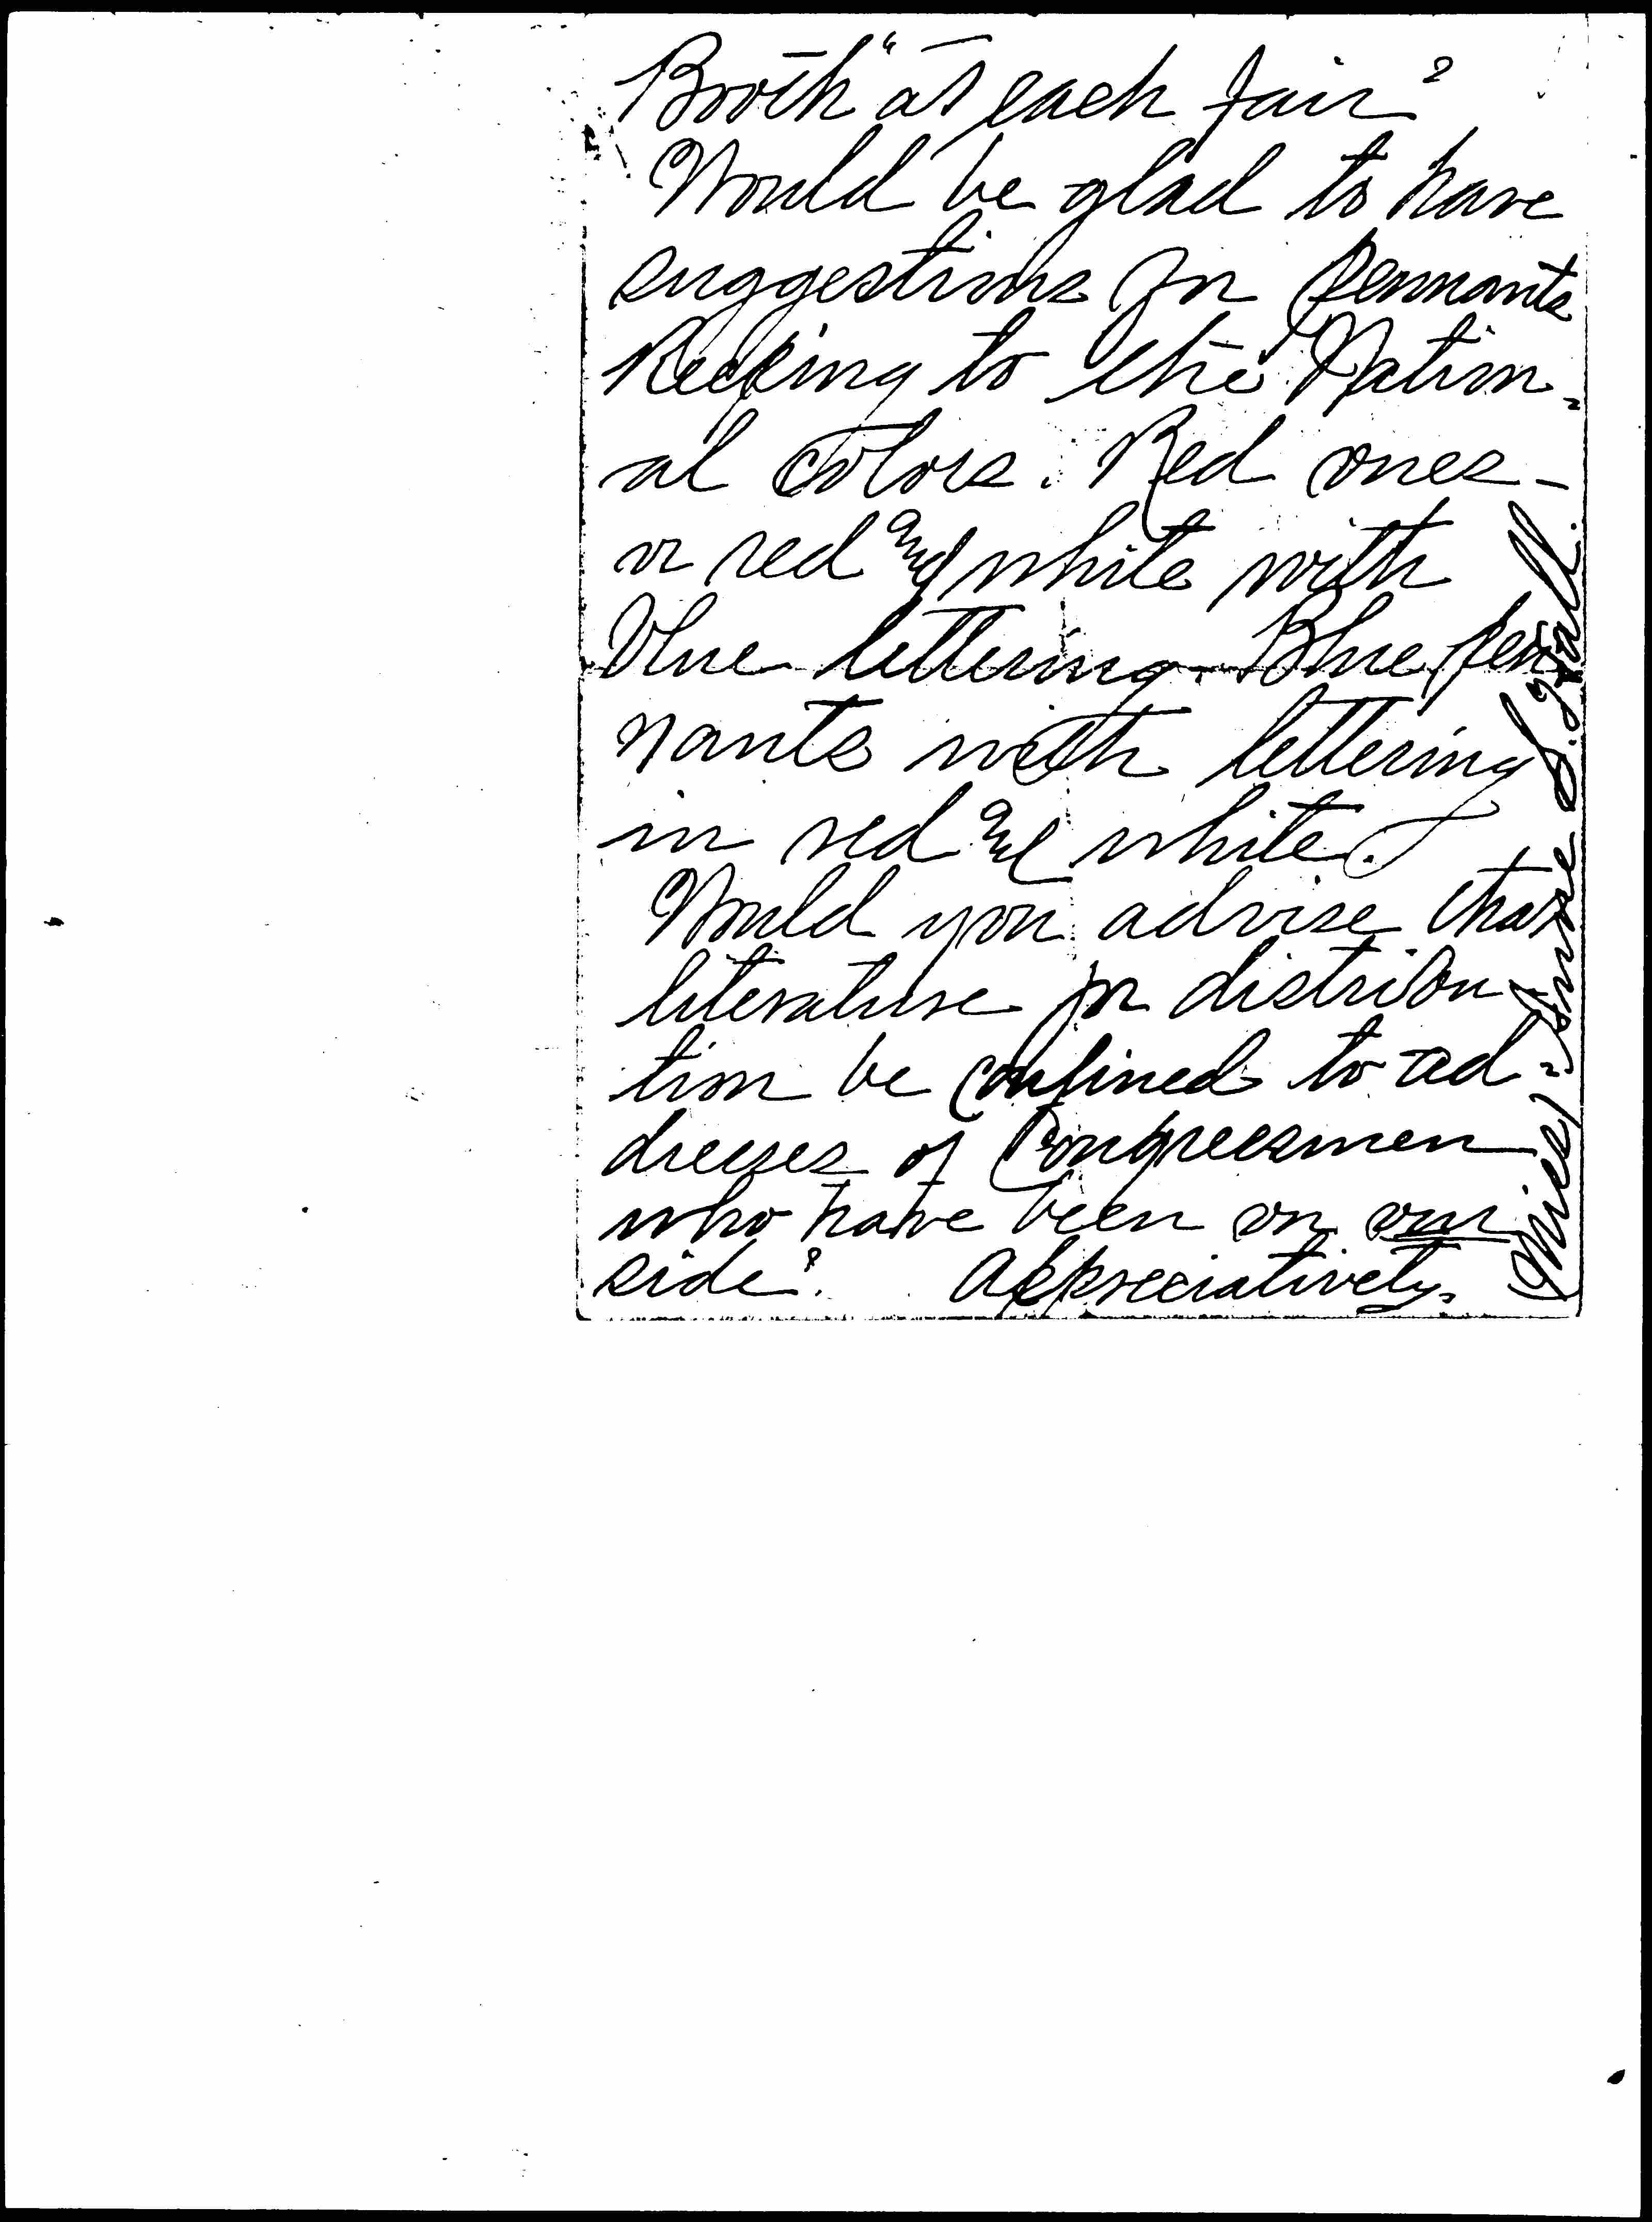 Booth" at each fair?
Would be glad to have
suggestions for pennants
Keeping to the Nation-
al colors. Red ones -
or red and white with
blue lettering. Blue pen
nants with lettering
in red and white.
Would you advise that
literature for distribu
tion be confined to ad-
dresses of Congressmen
who have been on our
side? Appreciatively.
(Miss) Anne S. Hall.